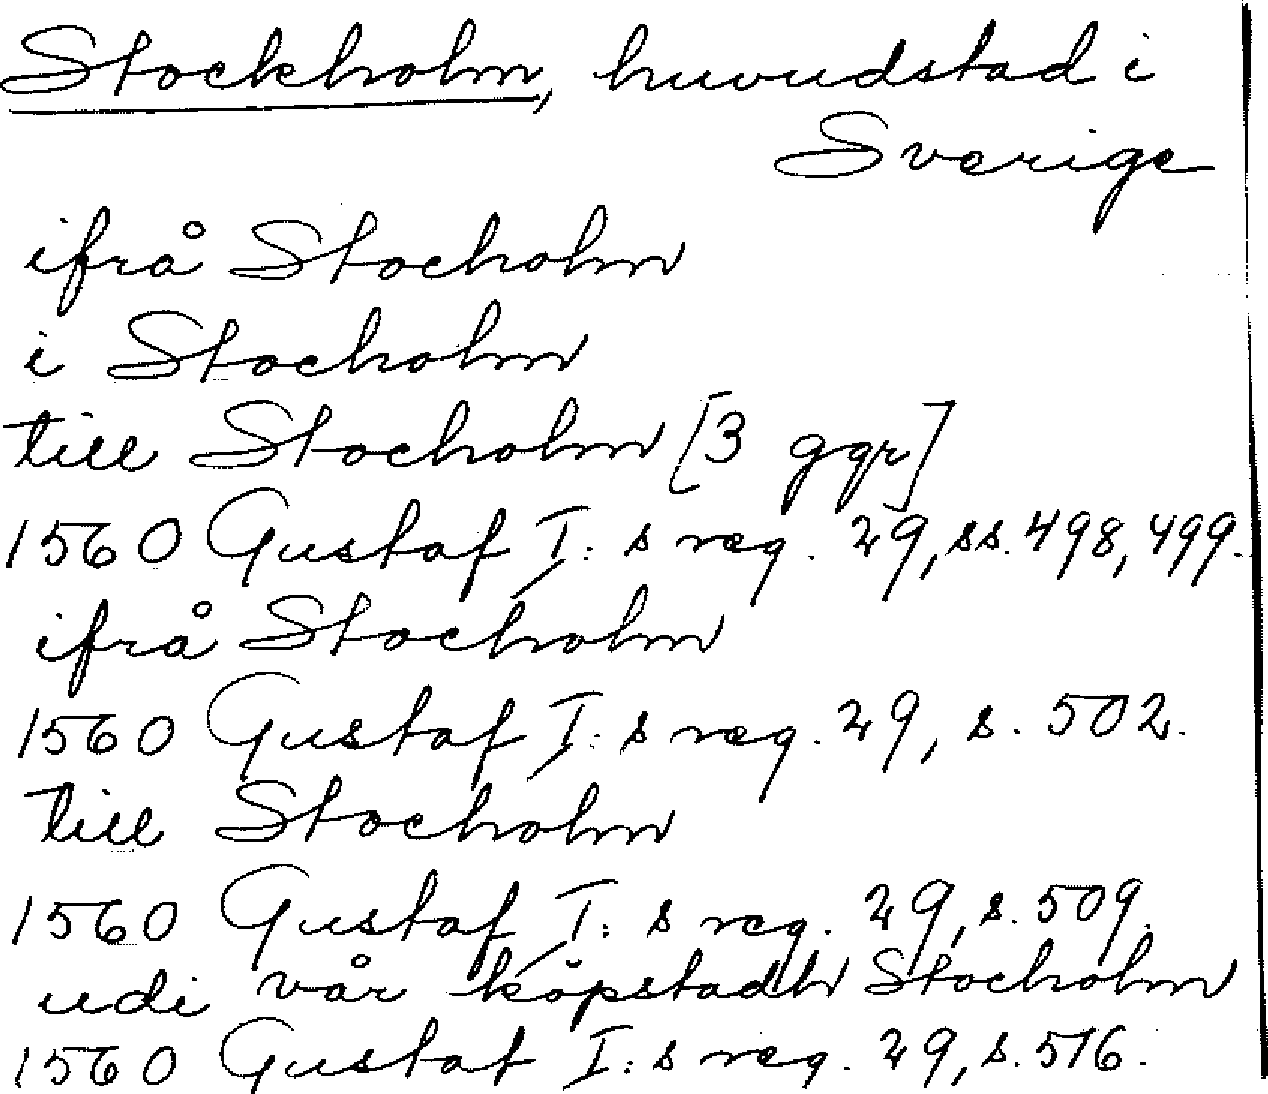 Stockholm, huvudstad i
Sverige
ifrå Stocholm
i Stocholm
till Stocholm [3 ggr]
1560 Gustaf I:s reg. 29, ss. 498, 499.
ifrå Stocholm
1560 Gustaf I:s reg. 29, s. 502.
till Stocholm
1560 Gustaf I:s reg. 29, s. 509.
udi vår köpstadh Stocholm
1560 Gustaf I:s reg. 29, s. 516.